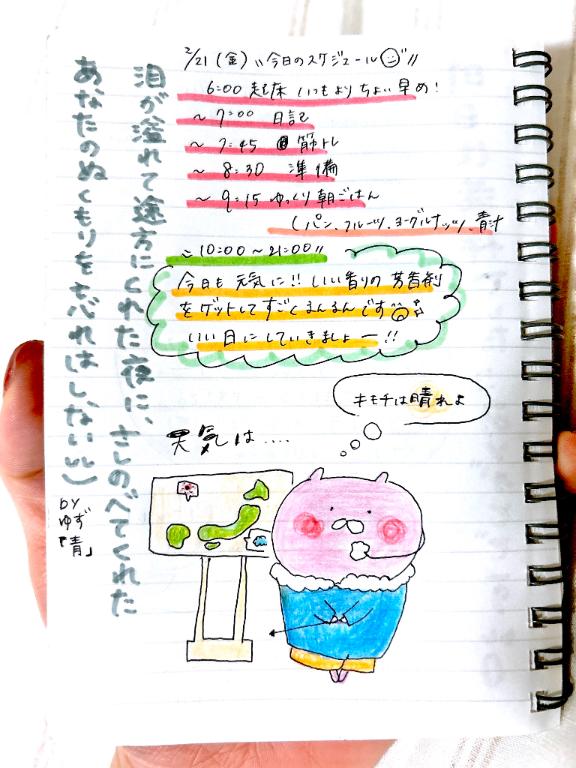 2/21 (金) \\今日のスケジュール//
6:00 起床 いつもよりちょい早め!
~ 7:00 日記
~ 7:45 筋トレ
~ 8:30 準備
~ 9:15 ゆっくり朝ごはん
(パン、フルーツ、ヨーグルナッツ、青汁
~ 10:00~21:00 //
今日も元気に!! いい香りの芳香剤
をゲットしてすごくまんまんです
いい日にしていきましょー!!
キモチは晴れよ
天気は....
涙が溢れて途方にくれた夜に、さしのべてくれた
あなたのぬくもりを忘れはしない
by
ゆず
「青」